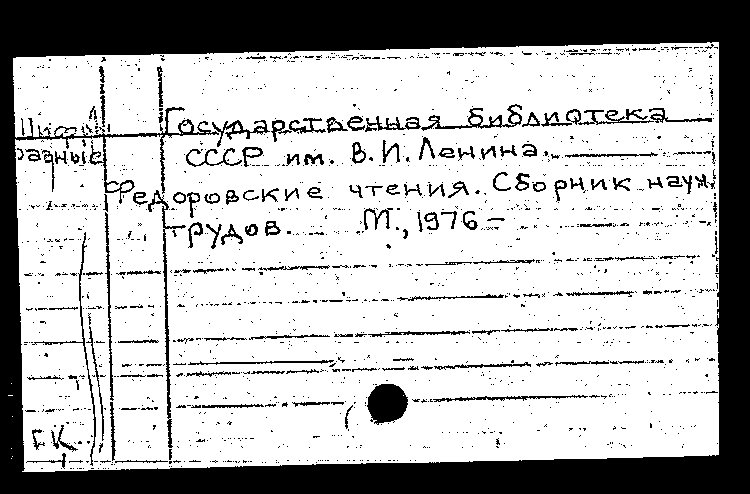 Шифры Государственная библиотека
разные СССР им. В.И. Ленина.
Федоровские чтения. Сборник науч.
трудов. М., 1976 –
Г.К.